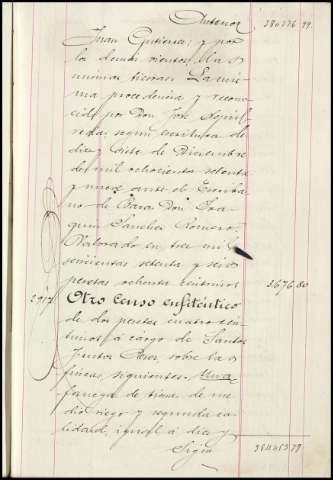 Anterior 380776.99.
Juan Gutierrez; y por
los demas vientos, las
mismas tierras. La mis
ma procedencia y recono
cido por Don José Sepúl
veda; segun escritura de
diez y siete de Diciembre
de mil ochocientos setenta
y nueve ante el Escriba
no de Baza Don Joa
quin Sanchez Romero.
Valorado en tres mil
seiscientas setenta y seis
pesetas ochenta centimos 3676.80
291.. Otro Censo enfitéutico
de dos pesetas cuatro cén
timos á cargo de Santos
sobre las
fincas siguientes. Una
fanega de tierra de me
dio riego y segunda ca
lidad, igual á diez y
Sigue 384453.79